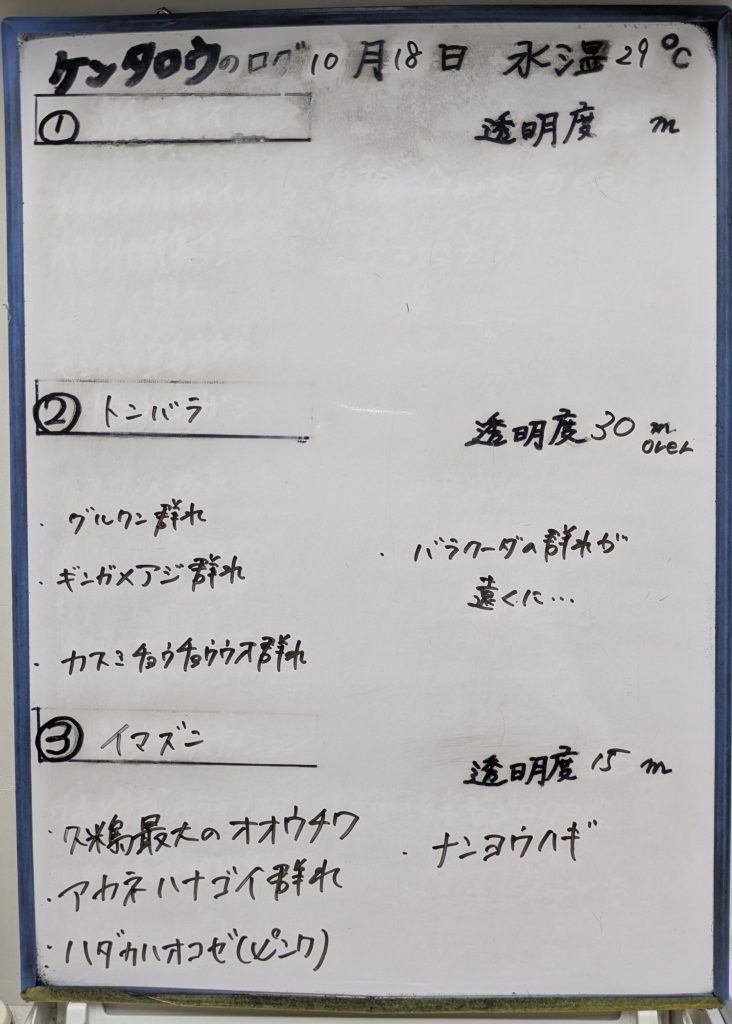 ケンタロウのログ 10月18日 水温29℃
① 透明度 m
② トンバラ 透明度30m over
・グルクン群れ
・ギンガメアジ群れ
・カスミチョウチョウウオ群れ
・バラクーダの群れが
遠くに…
③ イマズニ 透明度15m
・久米島最大のオオウチワ
・アカネハナゴイ群れ
・ハダカハオコゼ(ピンク)
・ナンヨウハギ